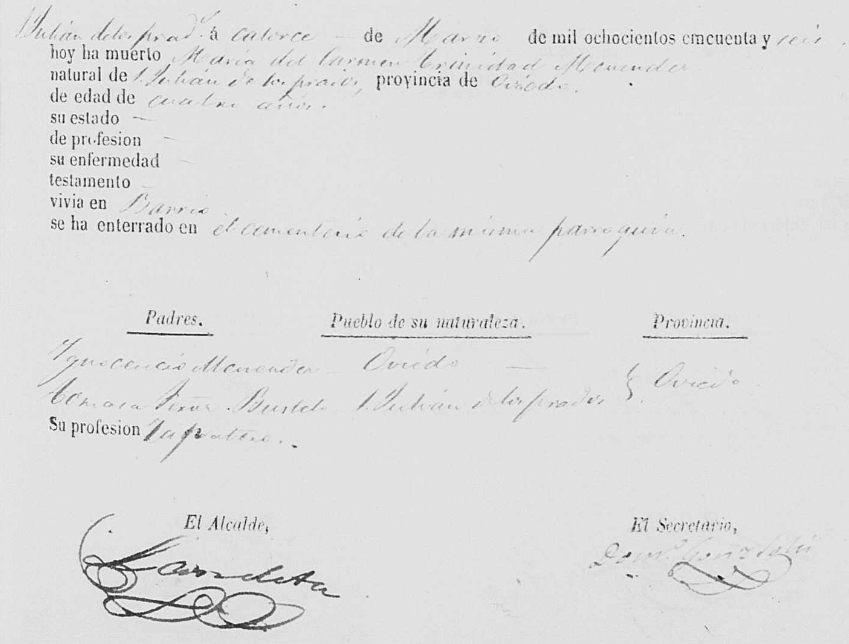 Julián de los prad.s á catorce — de Marzo de mil ochocientos cincuenta y seis.
hoy ha muerto María del Carmen Trinidad Menendez
natural de S. Julián de los prados, provincia de Oviedo.
de edad de cuatro años.
su estado —
de profesion —
su enfermedad —
testamento —
vivia en Barrio
se ha enterrado en el cementerio de la misma parroquia.
Padres. Pueblo de su naturaleza. Provincia.
Ygnocencio Menendez — Oviedo —
Tomasa Bustelo S. Julián de los prados } Oviedo
Su profesion Zapatero.
El Alcalde, El Secretario,